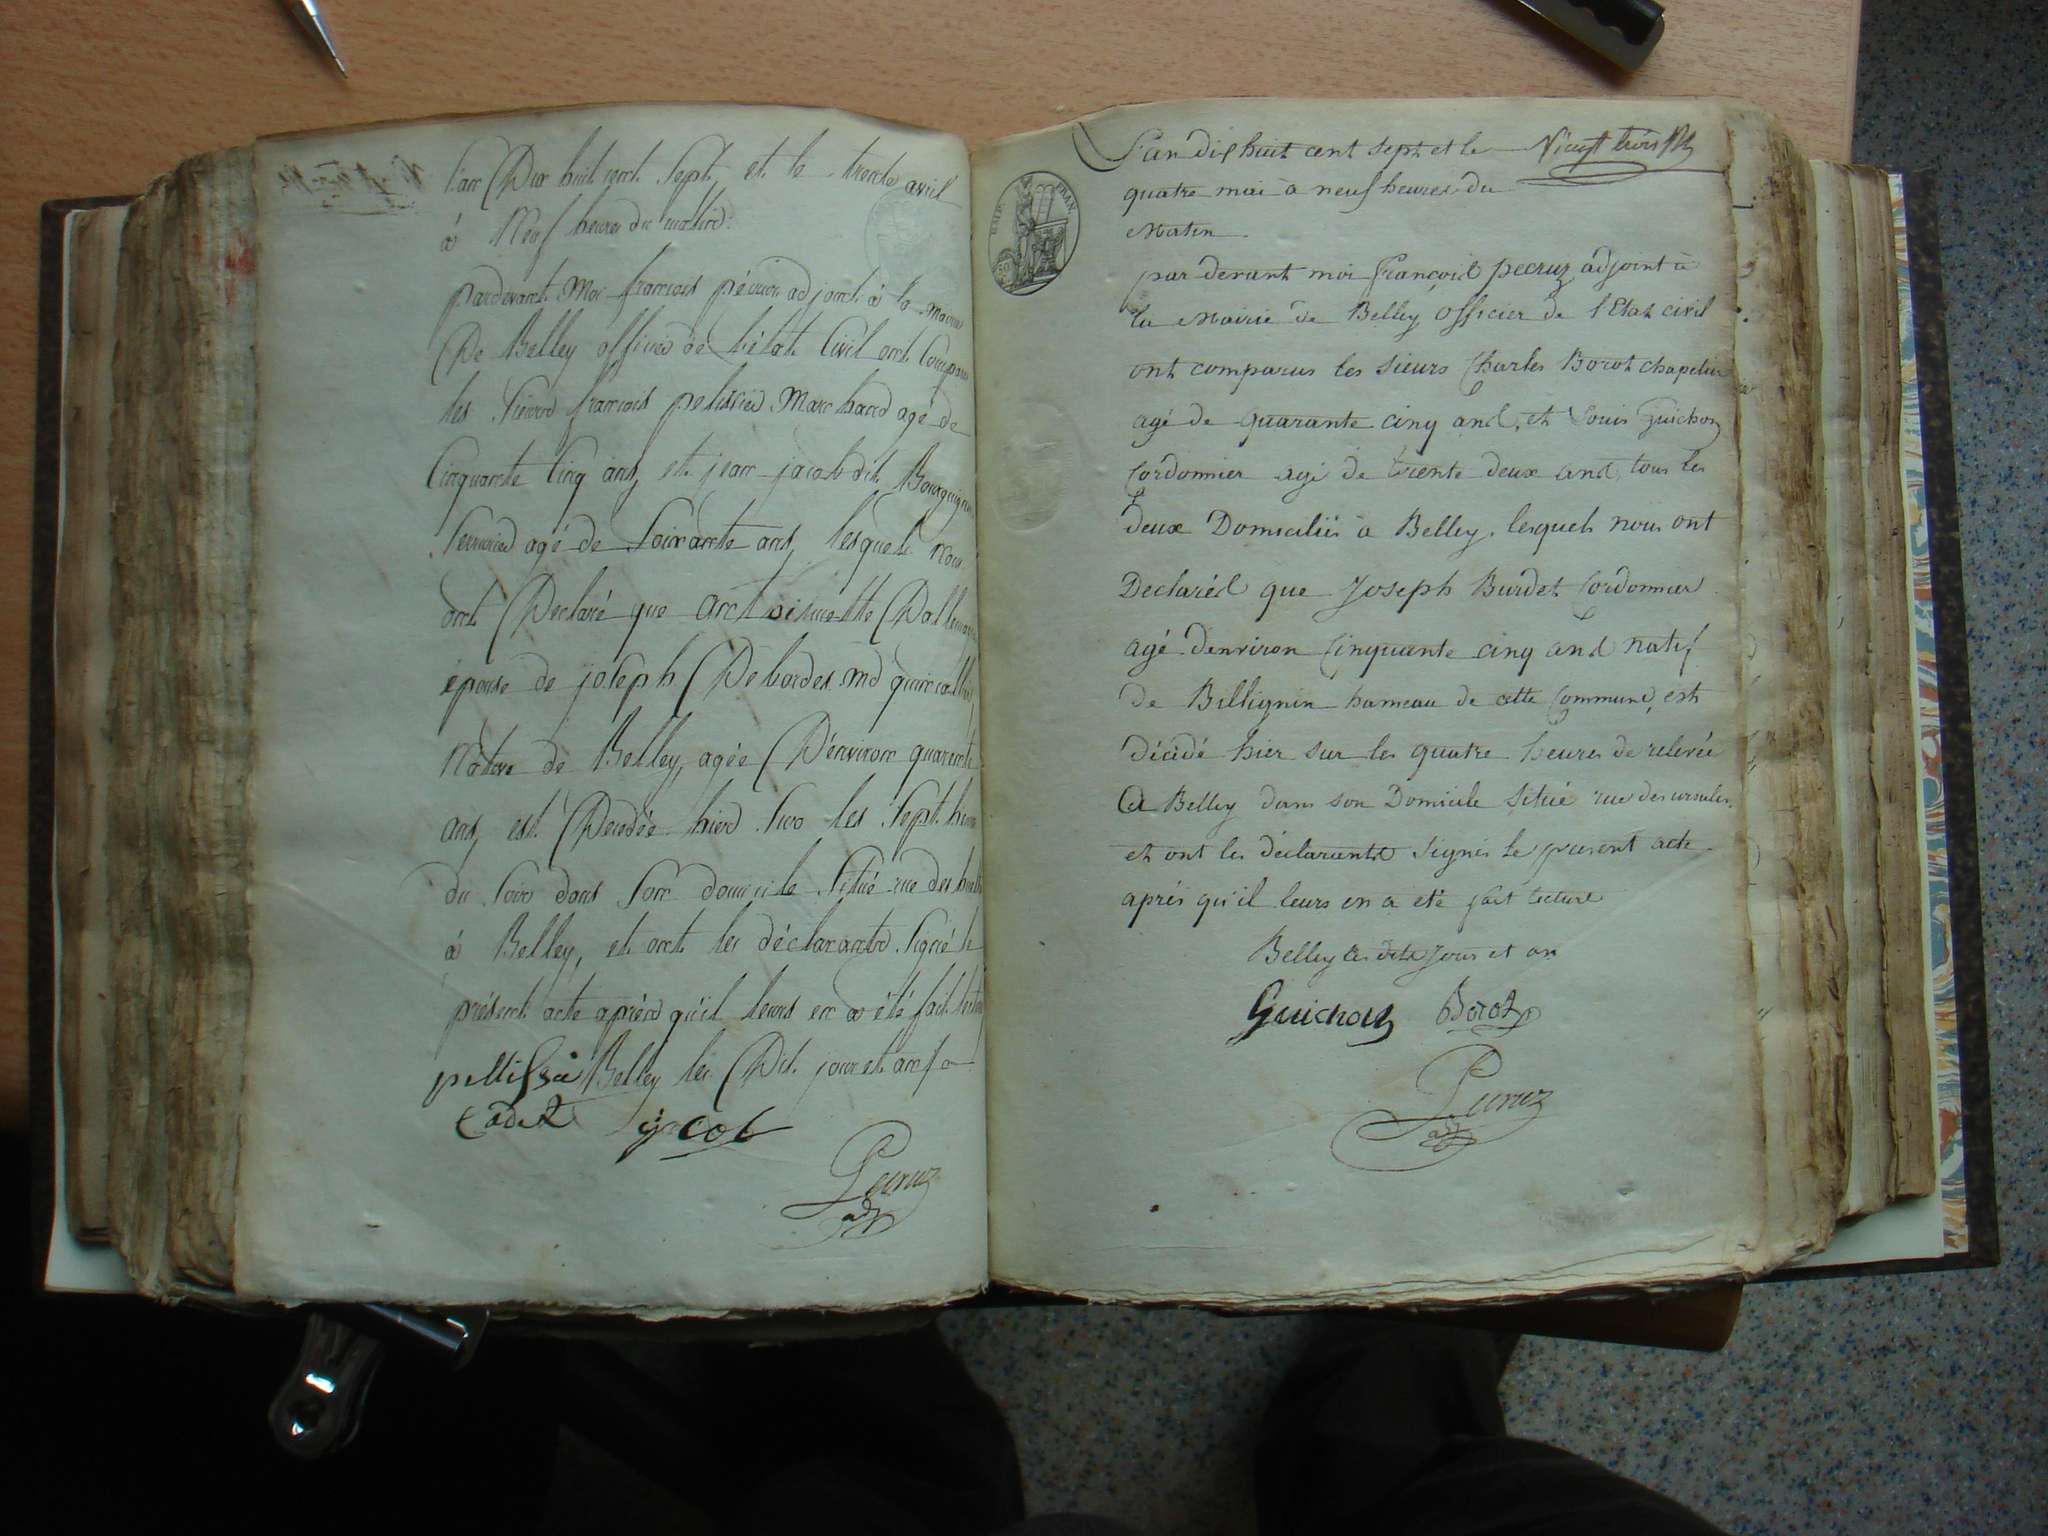 l'an Dix huit cent Sept, et le trente avril
à Neuf heures du matin.
pardevant Moi françois pécruz adjoint à la Mairie
De Belley officier de l'état Civil ont Comparu
les Sieurs françois pelissier Marchand agé de
Cinquante Cinq ans, et jean jacob dit Bourguignon
Serrurier agé de Soixante ans, lesquels Nous
ont Declaré que antoinette Dallemagne
épouse de joseph Debordes md quincallier
Native de Belley, agée D'environ quarente
ans, est Decedée hier Sur les Sept heures
du Soir dans Son domicile Situé rue des
à Belley, et ont les déclarants Signé le
présent acte après qu'il leurs en a été fait lecture
pellissié Belley les Dit jour et an
Cadet jacob
Pecruz
adj
GALP. FRAN
50
L'an dix huit cent sept et le Vingt trois
quatre mai à neuf heures du
Matin.
par devant moi françois pecruz adjoint à
la Mairie de Belley Officier de l'Etat civil
ont comparus les sieurs Charles Borot chapelier
agé de quarante cinq ans, et Louis Guichon
Cordonnier agé de trente deux ans, tous les
deux Domiciliés à Belley. lesquels nous ont
Declarés que Joseph Burdet Cordonnier
agé denviron Cinquante cinq ans natif
de Billignin hameau de cette Commune, est
décédé hier sur les quatre heures de relevée
A Belley dans son Domicile situé rue des ursules.
et ont les déclarants signés le present acte
après qu'il leurs en a eté fait lecture
Belley les dits Jour et an
Guichon Borot
Pecruz
adj